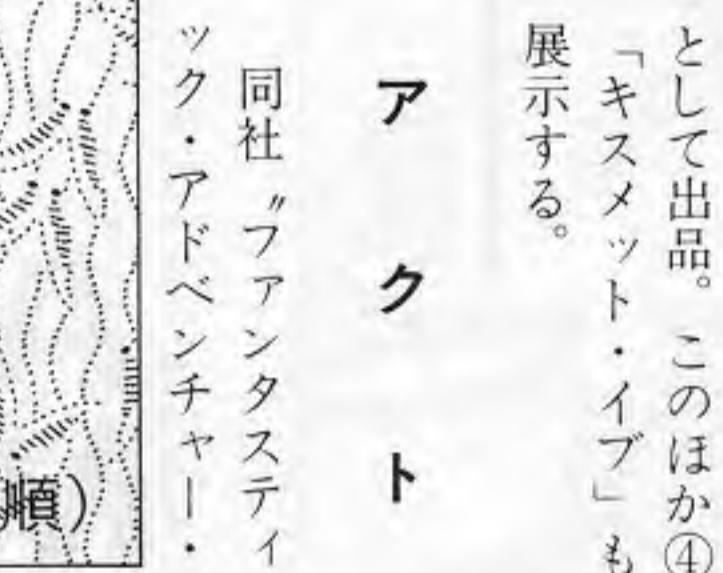 として出品。このほか④
「キスメット・イブ」も
展示する。
アクト
同社〝ファンタスティ
ック・アドベンチャー・
順）